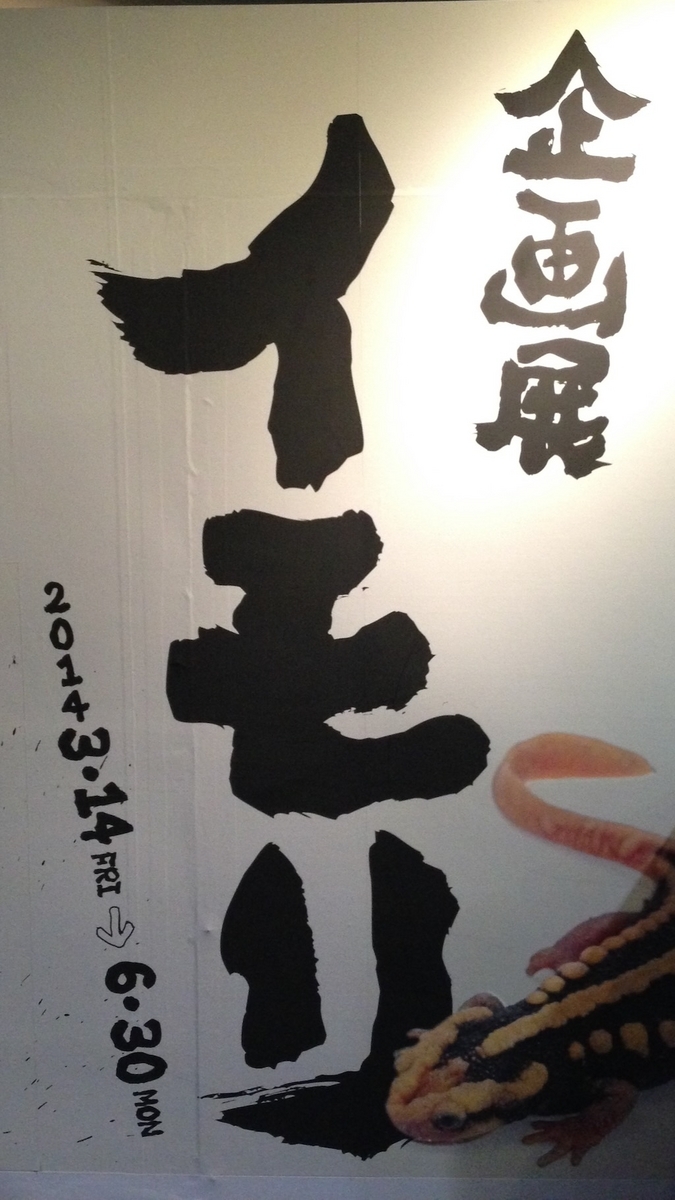 企画展
イモリ
2014 3・14 FRI ⇨ 6・30 MON